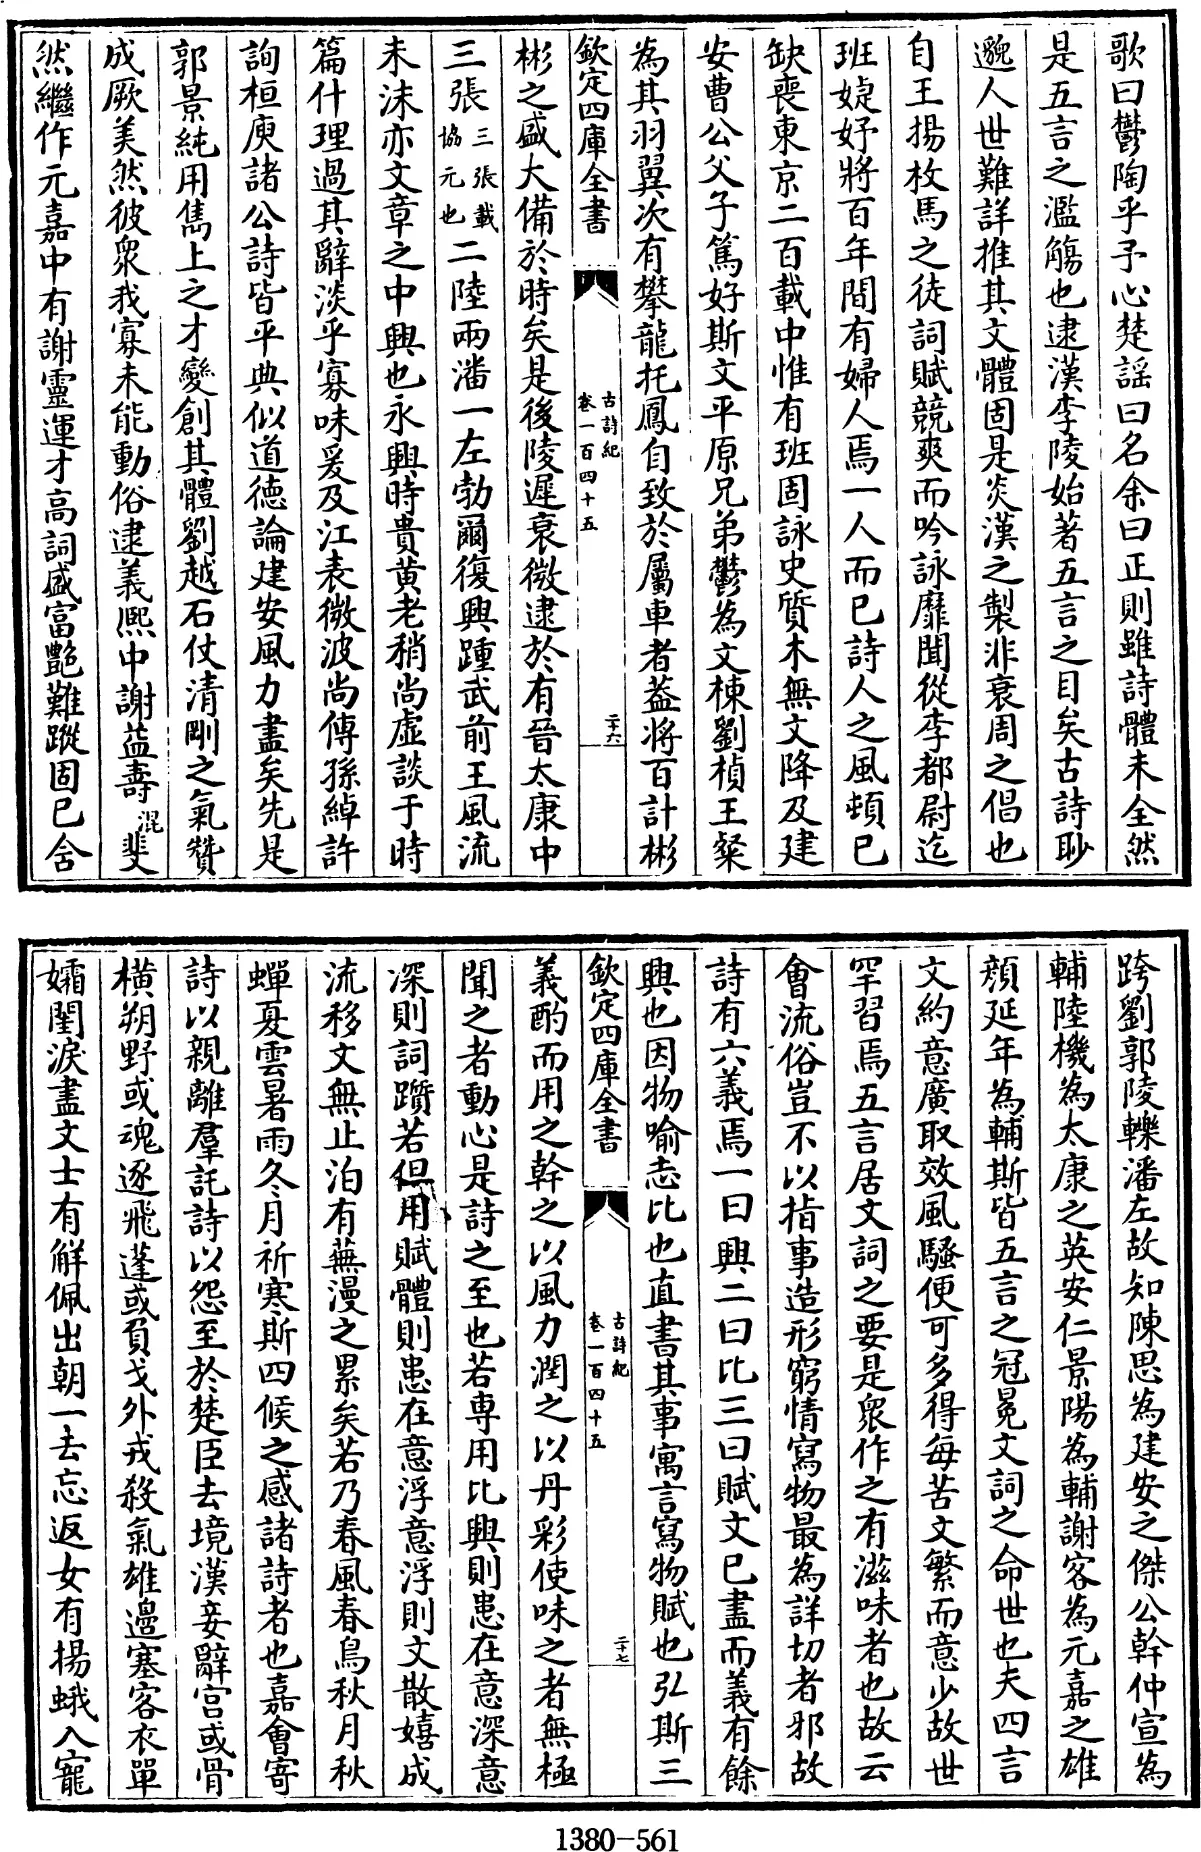 歌曰鬱陶乎予心楚謡曰名余曰正則雖詩體未全然
是五言之濫觴也逮漢李陵始著五言之目矣古詩眇
邈人世難詳推其文體固是炎漢之製非衰周之倡也
自王揚枚馬之徒詞賦競爽而吟詠靡聞從李都尉迄
班婕妤將百年間有婦人焉一人而已詩人之風頓已
缺喪東京二百載中惟有班固詠史質木無文降及建
安曹公父子篤好斯文平原兄弟鬱為文棟劉楨王粲
為其羽翼次有攀龍托鳳自致於屬車者葢將百計彬
欽定四庫全書
古詩紀
卷一百四十五
二十六
彬之盛大備於時矣是後陵遲衰微逮於有晉太康中
三張三張載協元也二陸兩潘一左勃爾復興踵武前王風流
未沬亦文章之中興也永興時貴黄老稍尚虛談于時
篇什理過其辭淡乎寡味爰及江表微波尚傳孫綽許
詢桓庾諸公詩皆平典似道德論建安風力盡矣先是
郭景純用雋上之才變創其體劉越石仗清剛之氣贊
成厥美然彼衆我寡未能動俗逮義熙中謝益壽混斐
然繼作元嘉中有謝靈運才高詞盛富艷難蹤固已含
跨劉郭陵轢潘左故知陳思為建安之傑公幹仲宣為
輔陸機為太康之英安仁景陽為輔謝客為元嘉之雄
顔延年為輔斯皆五言之冠冕文詞之命世也夫四言
文約意廣取效風騷便可多得每苦文繁而意少故世
罕習焉五言居文詞之要是衆作之有滋味者也故云
會流俗豈不以指事造形窮情寫物最為詳切者邪故
詩有六義焉一曰興二曰比三曰賦文已盡而義有餘
興也因物喻志比也直書其事寓言寫物賦也弘斯三
欽定四庫全書
古詩紀
卷一百四十五
二十七
義酌而用之幹之以風力潤之以丹彩使味之者無極
聞之者動心是詩之至也若專用比興則患在意深意
深則詞躓若但用賦體則患在意浮意浮則文散嬉成
流移文無止泊有蕪漫之累矣若乃春風春鳥秋月秋
蟬夏雲暑雨冬月祈寒斯四候之感諸詩者也嘉會寄
詩以親離羣託詩以怨至於楚臣去境漢妾辭宫或骨
橫朔野或魂逐飛蓬或負戈外戎殺氣雄邊塞客衣單
孀閨淚盡文士有解佩出朝一去忘返女有揚蛾入寵
1380-561